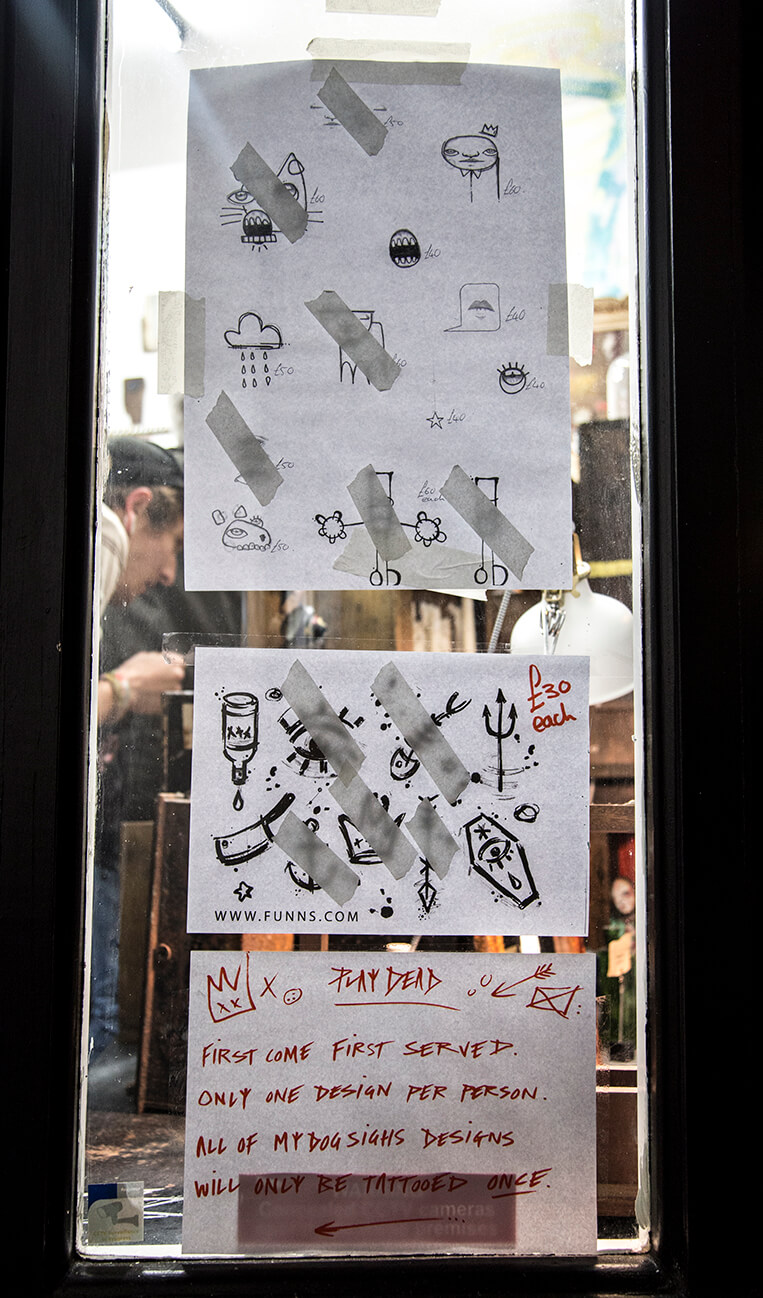 £50
£60
£80.
£40
£40
£50
£40
£40
£40
£50
£60
each
£50
£30
each
XXX
WWW.FUNNS.COM
XX X PLAY DEAD
FIRST COME FIRST SERVED.
ONLY ONE DESIGN PER PERSON.
ALL OF MYDOGSIGHS DESIGNS
WILL ONLY BE TATTOOED ONCE.
cameras
premises